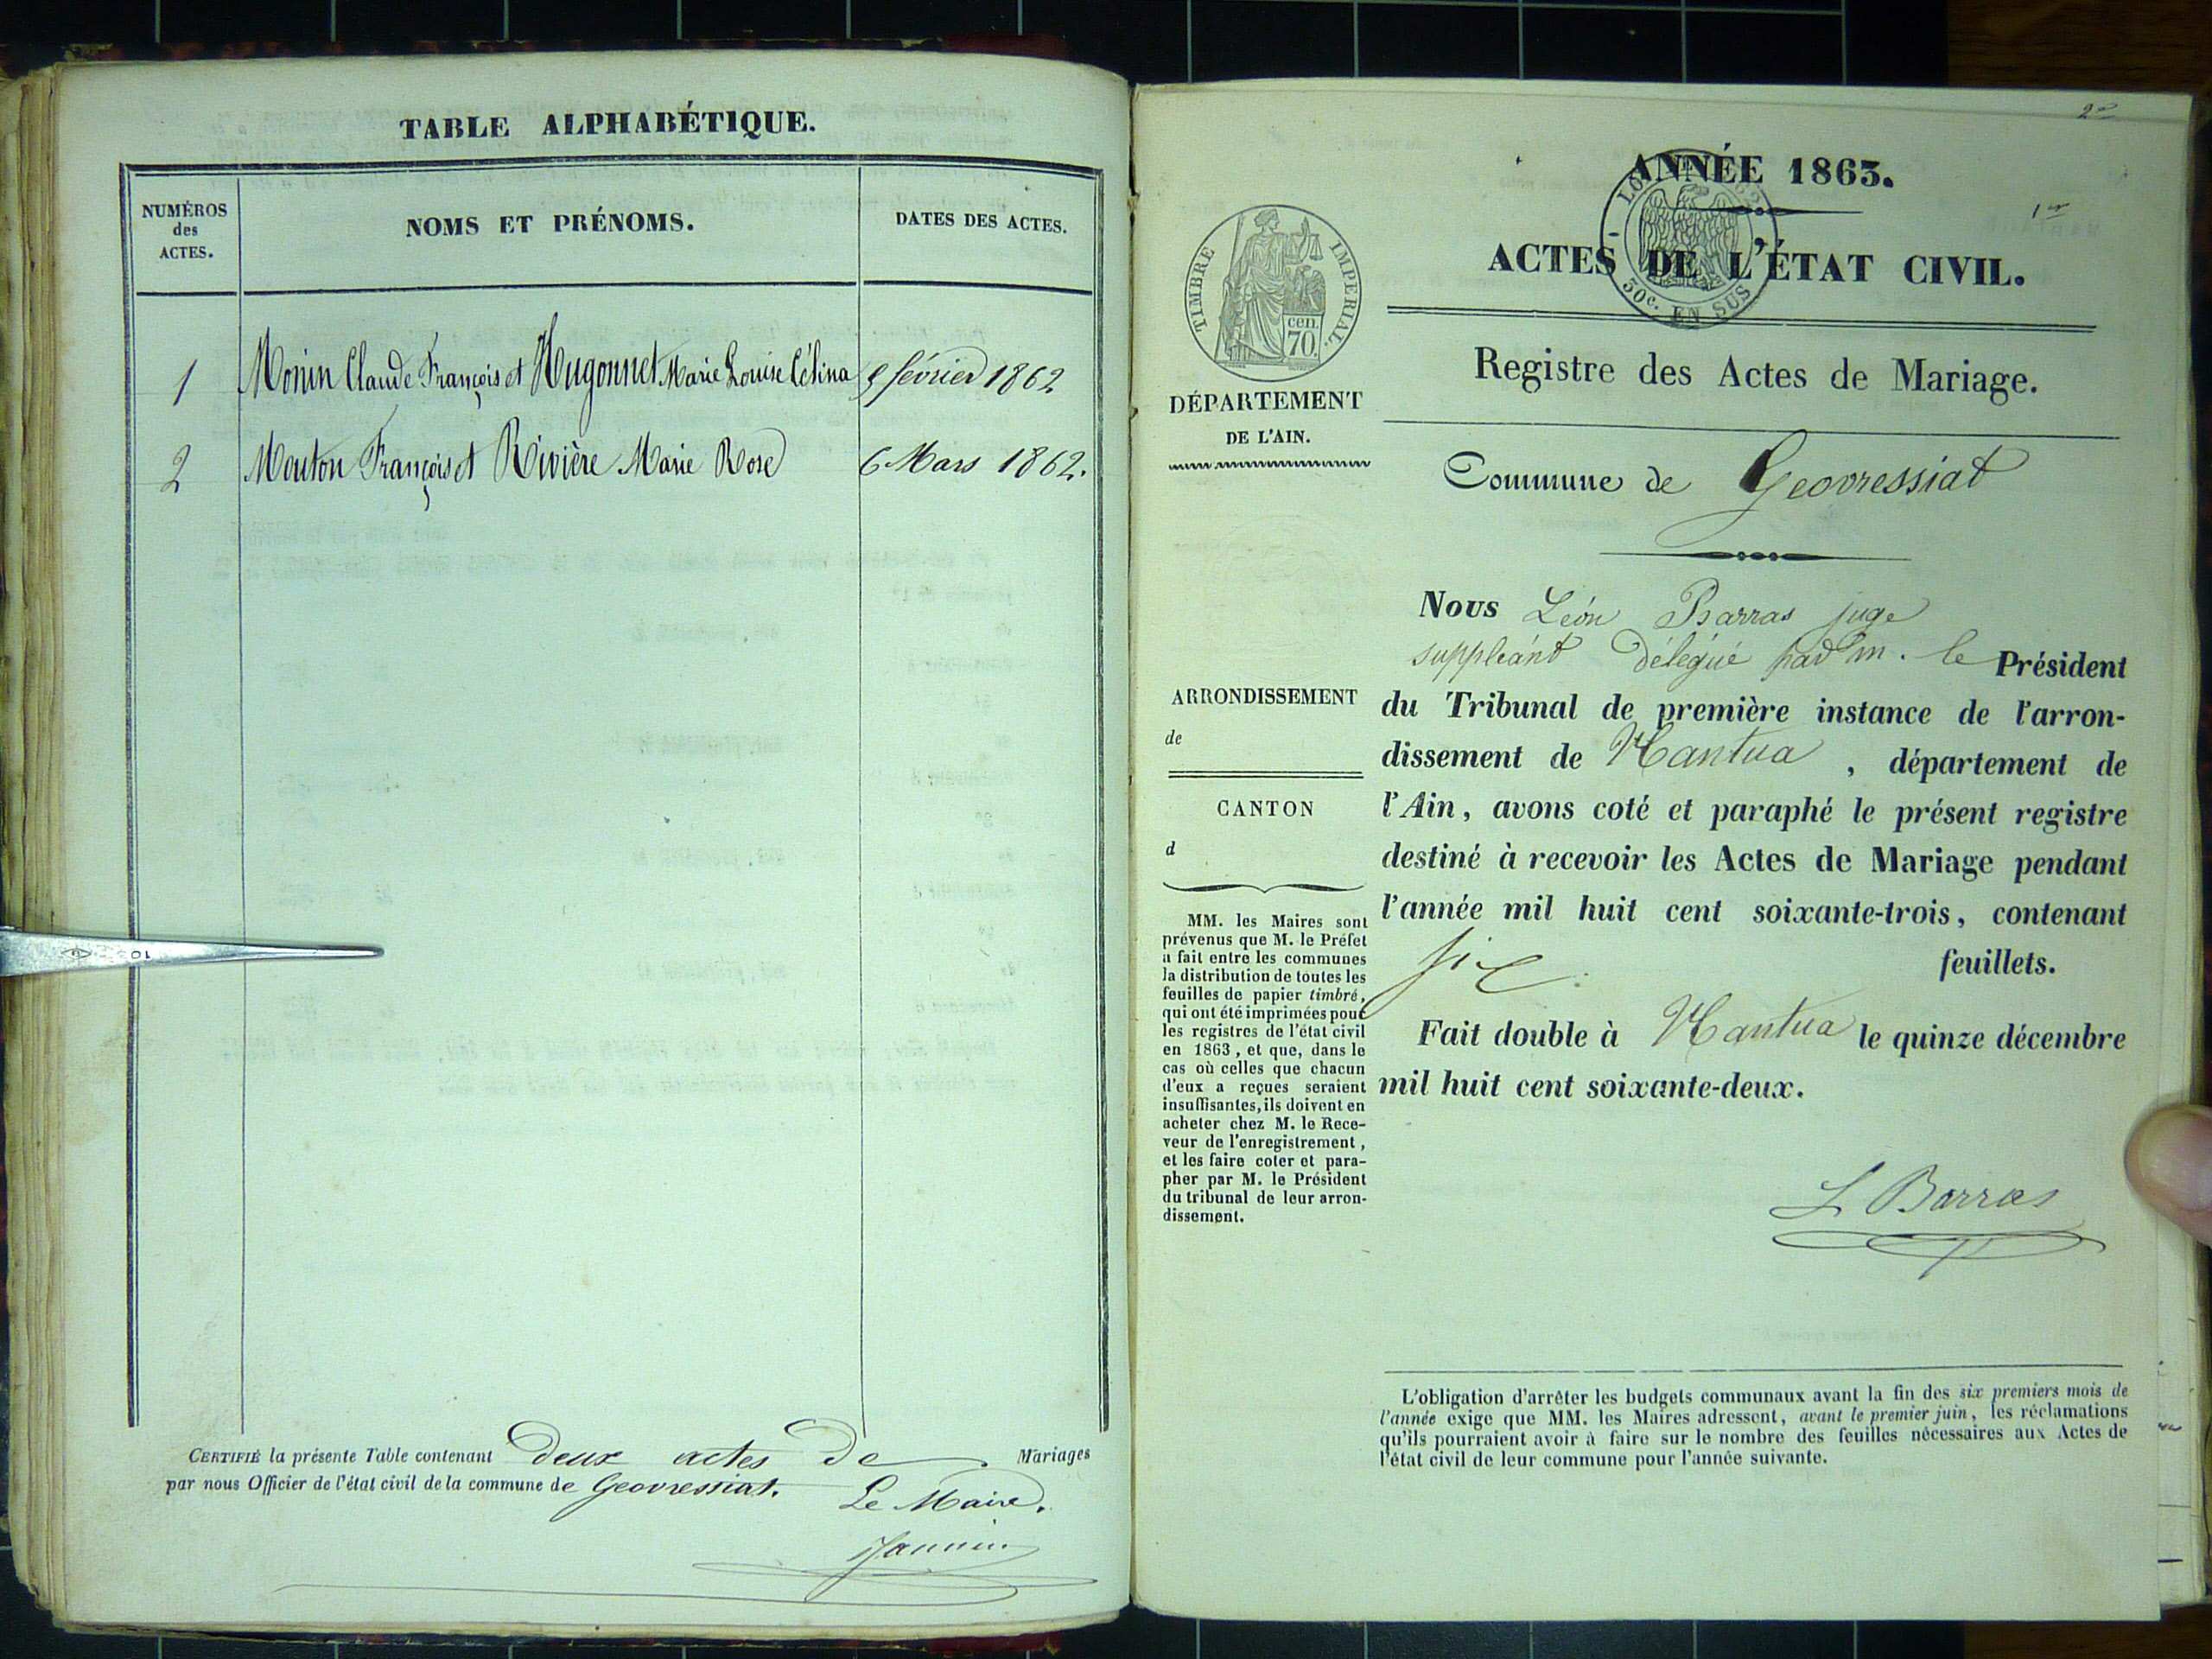 TABLE ALPHABÉTIQUE.
NUMÉROS
des
ACTES.
NOMS ET PRÉNOMS.
DATES DES ACTES.
1 Monin Claude François et Hugonnet Marie Louise Célina 9 février 1862
2 Mouton François et Rivière Marie Rose 6 Mars 1862.
CERTIFIÉ la présente Table contenant deux actes de Mariages
par nous Officier de l'état civil de la commune de Geovressiat.
Le Maire,
Jannin
10
2e
1er
ANNÉE 1863.
ACTES DE L'ÉTAT CIVIL.
50c. EN SUS
TIMBRE IMPERIAL.
cen.
70.
Registre des Actes de Mariage.
DÉPARTEMENT
DE L'AIN.
Commune de Geovressiat
Nous Léon Barras juge
suppléant délégué par m. le Président
du Tribunal de première instance de l'arron-
dissement de Nantua, département de
l'Ain, avons coté et paraphé le présent registre
destiné à recevoir les Actes de Mariage pendant
l'année mil huit cent soixante-trois, contenant
six feuillets.
Fait double à Nantua le quinze décembre
mil huit cent soixante-deux.
L Barras
ARRONDISSEMENT
de
CANTON
d
MM. les Maires sont
prévenus que M. le Préfet
a fait entre les communes
la distribution de toutes les
feuilles de papier timbré,
qui ont été imprimées pour
les registres de l'état civil
en 1863, et que, dans le
cas où celles que chacun
d'eux a reçues seraient
insuffisantes, ils doivent en
acheter chez M. le Rece-
veur de l'enregistrement,
et les faire coter et para-
pher par M. le Président
du tribunal de leur arron-
dissement.
L'obligation d'arrêter les budgets communaux avant la fin des six premiers mois de
l'année exige que MM. les Maires adressent, avant le premier juin, les réclamations
qu'ils pourraient avoir à faire sur le nombre des feuilles nécessaires aux Actes de
l'état civil de leur commune pour l'année suivante.